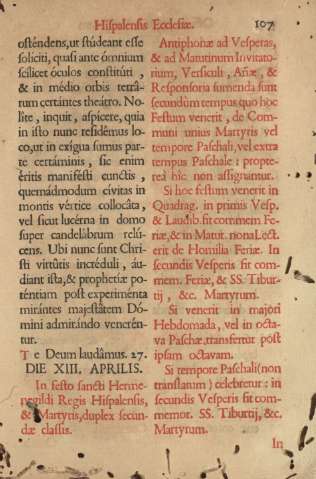 Hispalensis Ecclesiæ. 107
ostendens, ut studeant esse
soliciti, quasi ante ómnium
scilicet óculos constitúti,
& in médio orbis terrá-
rum certántes theátro. No-
líte, inquit, aspícere, quia
in isto nunc residémus lo-
co, ut in exígua simus par-
te certáminis, sic enim
éritis manifésti cunctis,
quemádmodum cívitas in
montis vértice collocáta,
vel sicut lucérna in domo
super candelábrum relú-
cens. Ubi nunc sunt Chri-
sti virtútis incréduli, áu-
diant ista, & prophetiæ po-
téntiam post experiménta
mirántes majestátem Dó-
mini admirándo veneren-
tur.
Te Deum laudámus. 27.
DIE XIII. APRILIS.
In festo sancti Herme-
negildi Regis Hispalensis,
& Martyris, duplex secun-
dæ classis.
Antiphonæ ad Vesperas,
& ad Matutinum Invitato-
rium, Versiculi, Añæ, &
Responsoria sumenda sunt
secundùm tempus quo hoc
Festum venerit, de Com-
muni unius Martyris vel
tempore Paschali, vel extra
tempus Paschale: propte-
rea hîc non assignantur.
Si hoc festum venerit in
Quadrag. in primis Vesp.
& Laudib. fit commem. Fe-
riæ, & in Matut. nona Lect.
erit de Homilia Feriæ. In
secundis Vesperis fit com-
mem. Feriæ, & SS. Tibur-
tij, &c. Martyrum.
Si venerit in majori
Hebdomada, vel in octa-
va Paschæ, transfertur post
ipsam octavam.
Si tempore Paschali (non
translatum) celebretur: in
secundis Vesperis fit com-
memor. SS. Tiburtij, &c.
Martyrum.
In